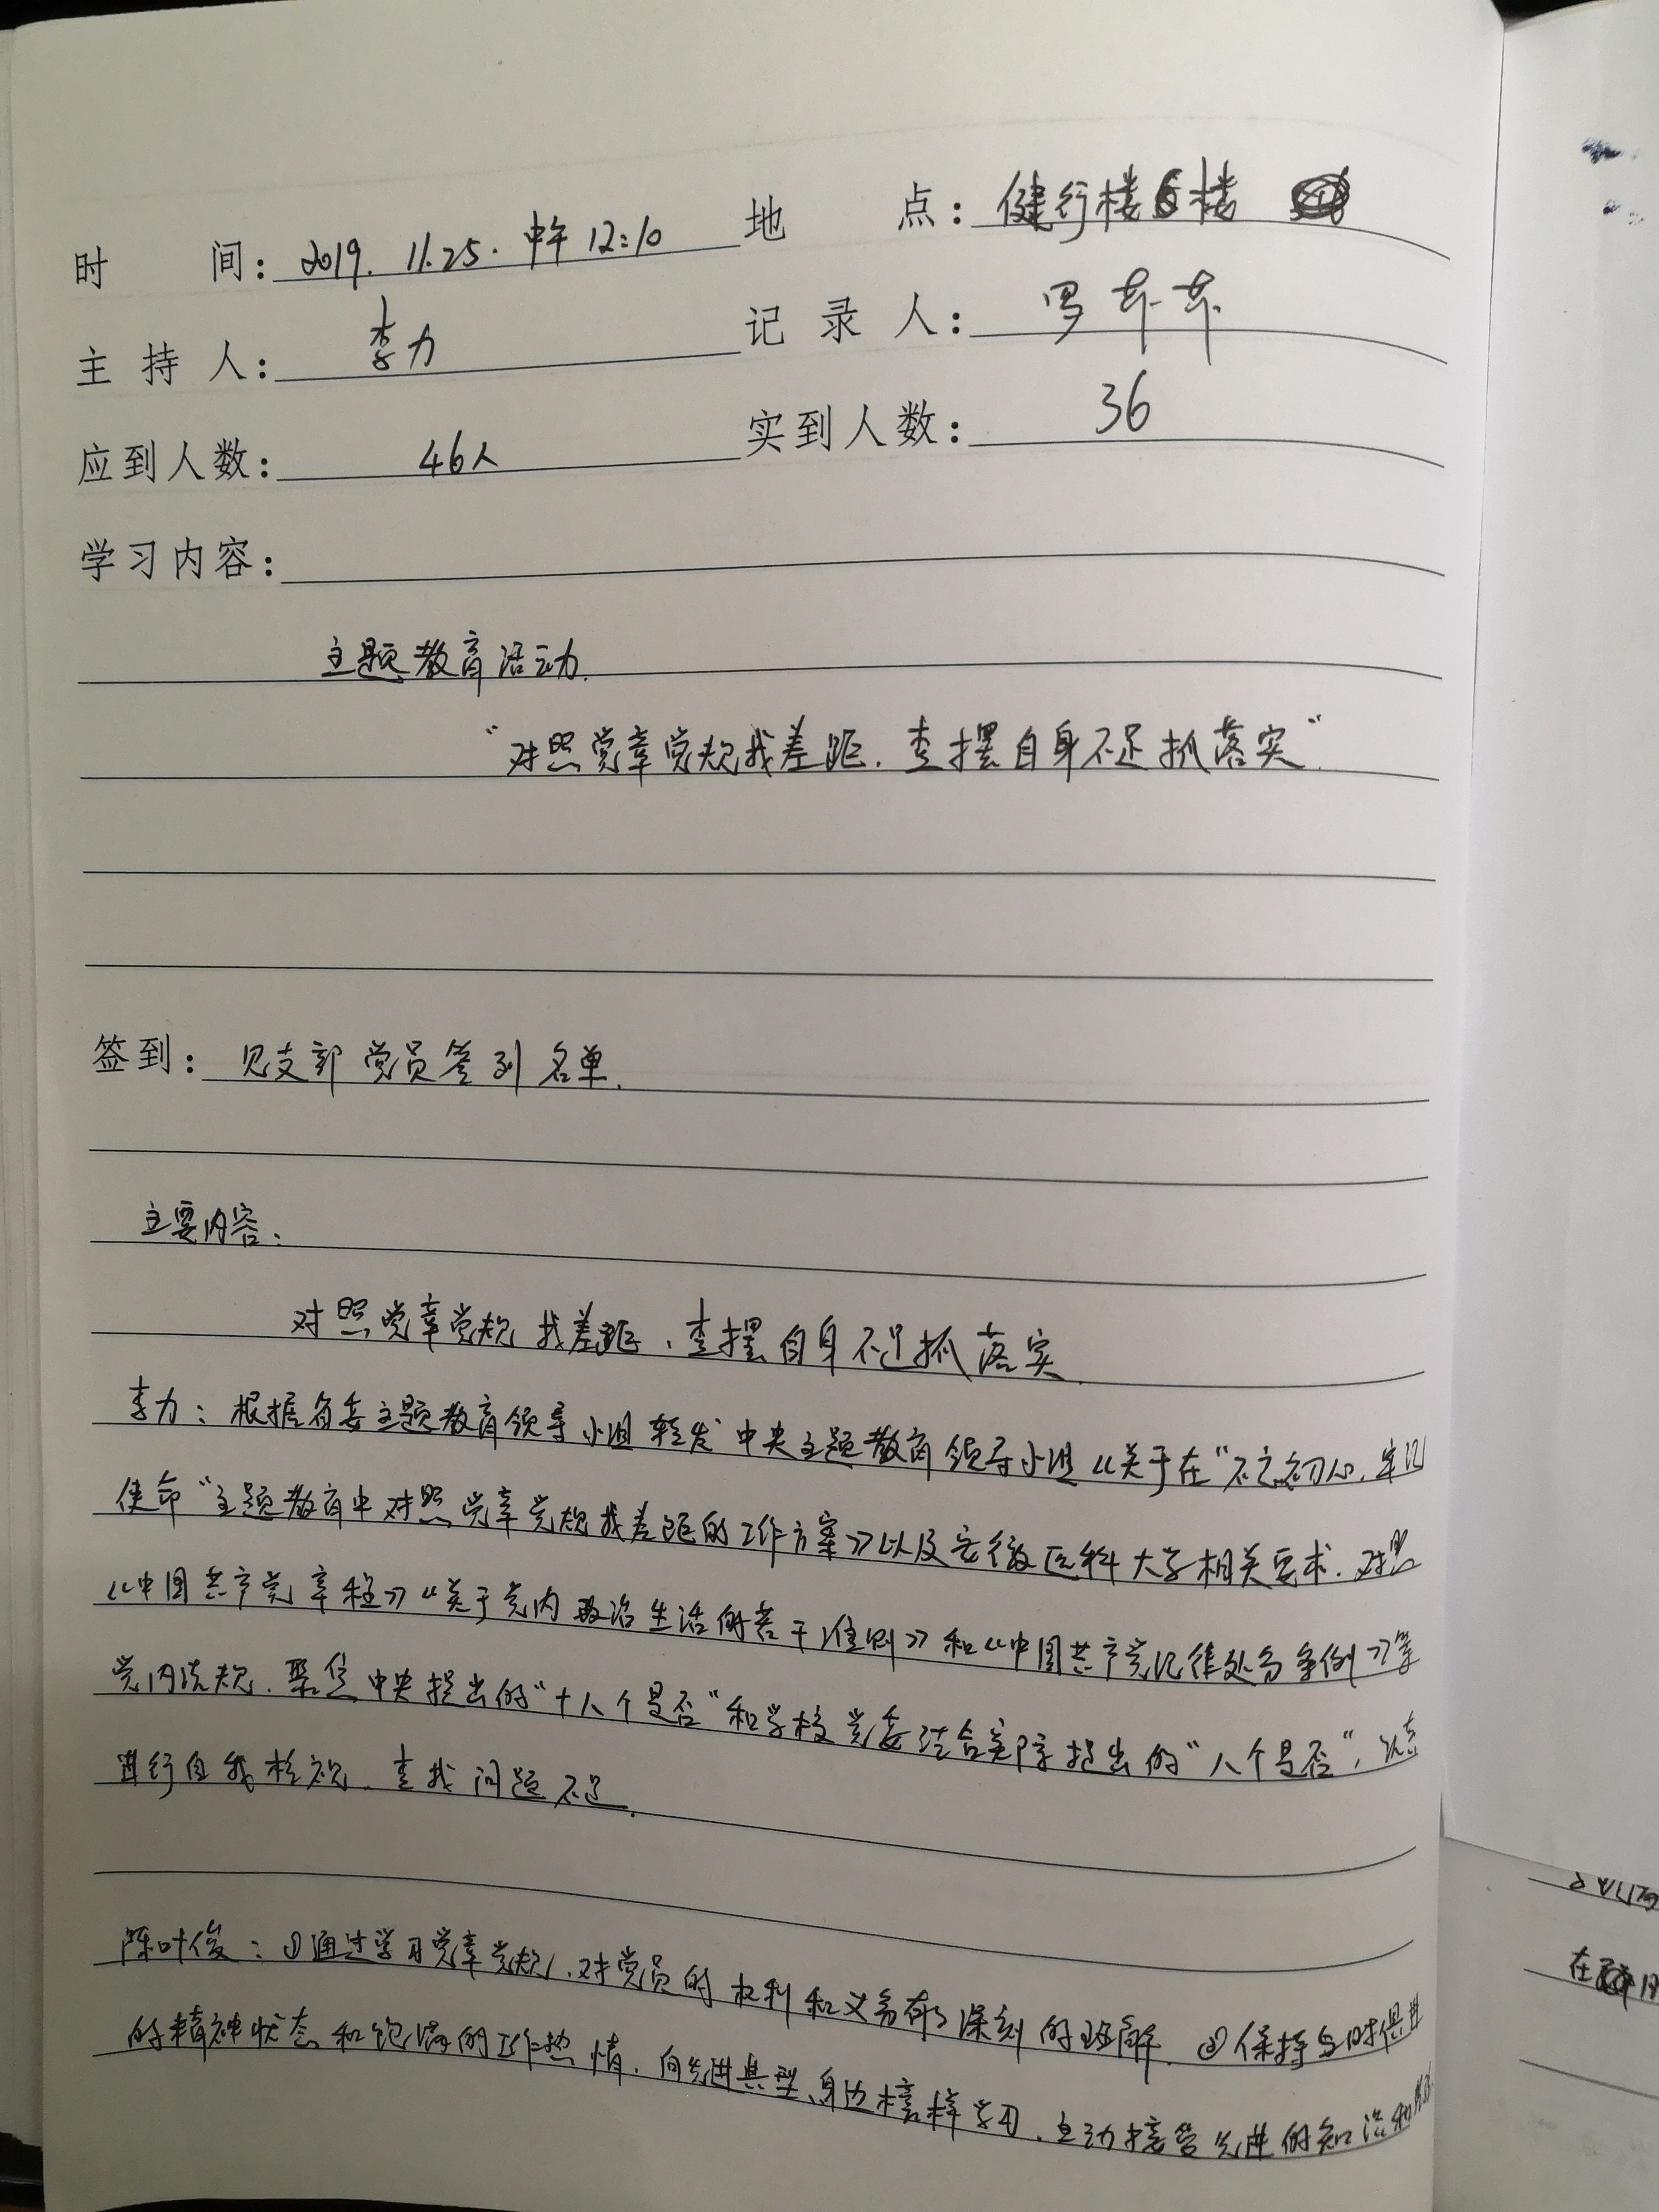 时间：2019.11.25.中午12:10 地点：健行楼6楼
主持人：李力 记录人：罗芹芹
应到人数：46人 实到人数：36
学习内容：
主题教育活动.
"对照党章党规找差距，查摆自身不足抓落实".
签到：见支部党员签到名单.
主要内容：
对照党章党规找差距，查摆自身不足抓落实.
李力：根据省委主题教育领导小组转发中央主题教育领导小组《关于在"不忘初心，牢记
使命"主题教育中对照党章党规找差距的工作方案》以及安徽医科大学相关要求，对照
《中国共产党章程》《关于党内政治生活的若干准则》和《中国共产党纪律处分条例》等
党内法规，聚焦中央提出的"十八个是否"和学校党委结合实际提出的"八个是否"，认真
进行自我检视，查找问题不足.
陈叶俊：①通过学习党章党规，对党员的权利和义务有了深刻的理解. ②保持与时俱进
的精神状态和饱满的工作热情，向先进典型、身边榜样学习，主动接受先进的知识和
在